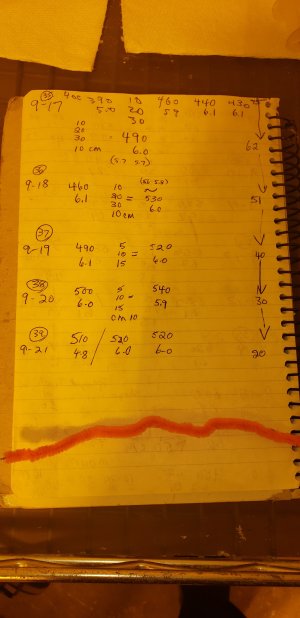 35 400 390 10 460 440 430
9-17 5.0 20 5.9 6.1 6.1
10 30
20
30 = 490
10 cm 6.0 62
(5.7 5.7)
36
9-18 460 10
6.1 20 = 530 51
30 6.0
10cm
37
9-19 490 5 520
6.1 10 = 6.0 40
15
38
9-20 500 5 540
6.0 10 = 5.9 30
15
cm 10
39
9-21 510 / 520 520
4.8 6.0 6.0 20